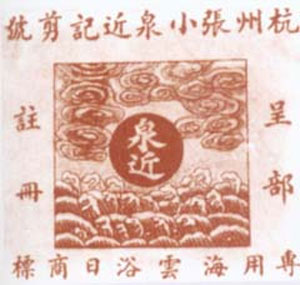 杭州張小泉近記剪號
呈部
註冊
泉近
專用海雲浴日商標